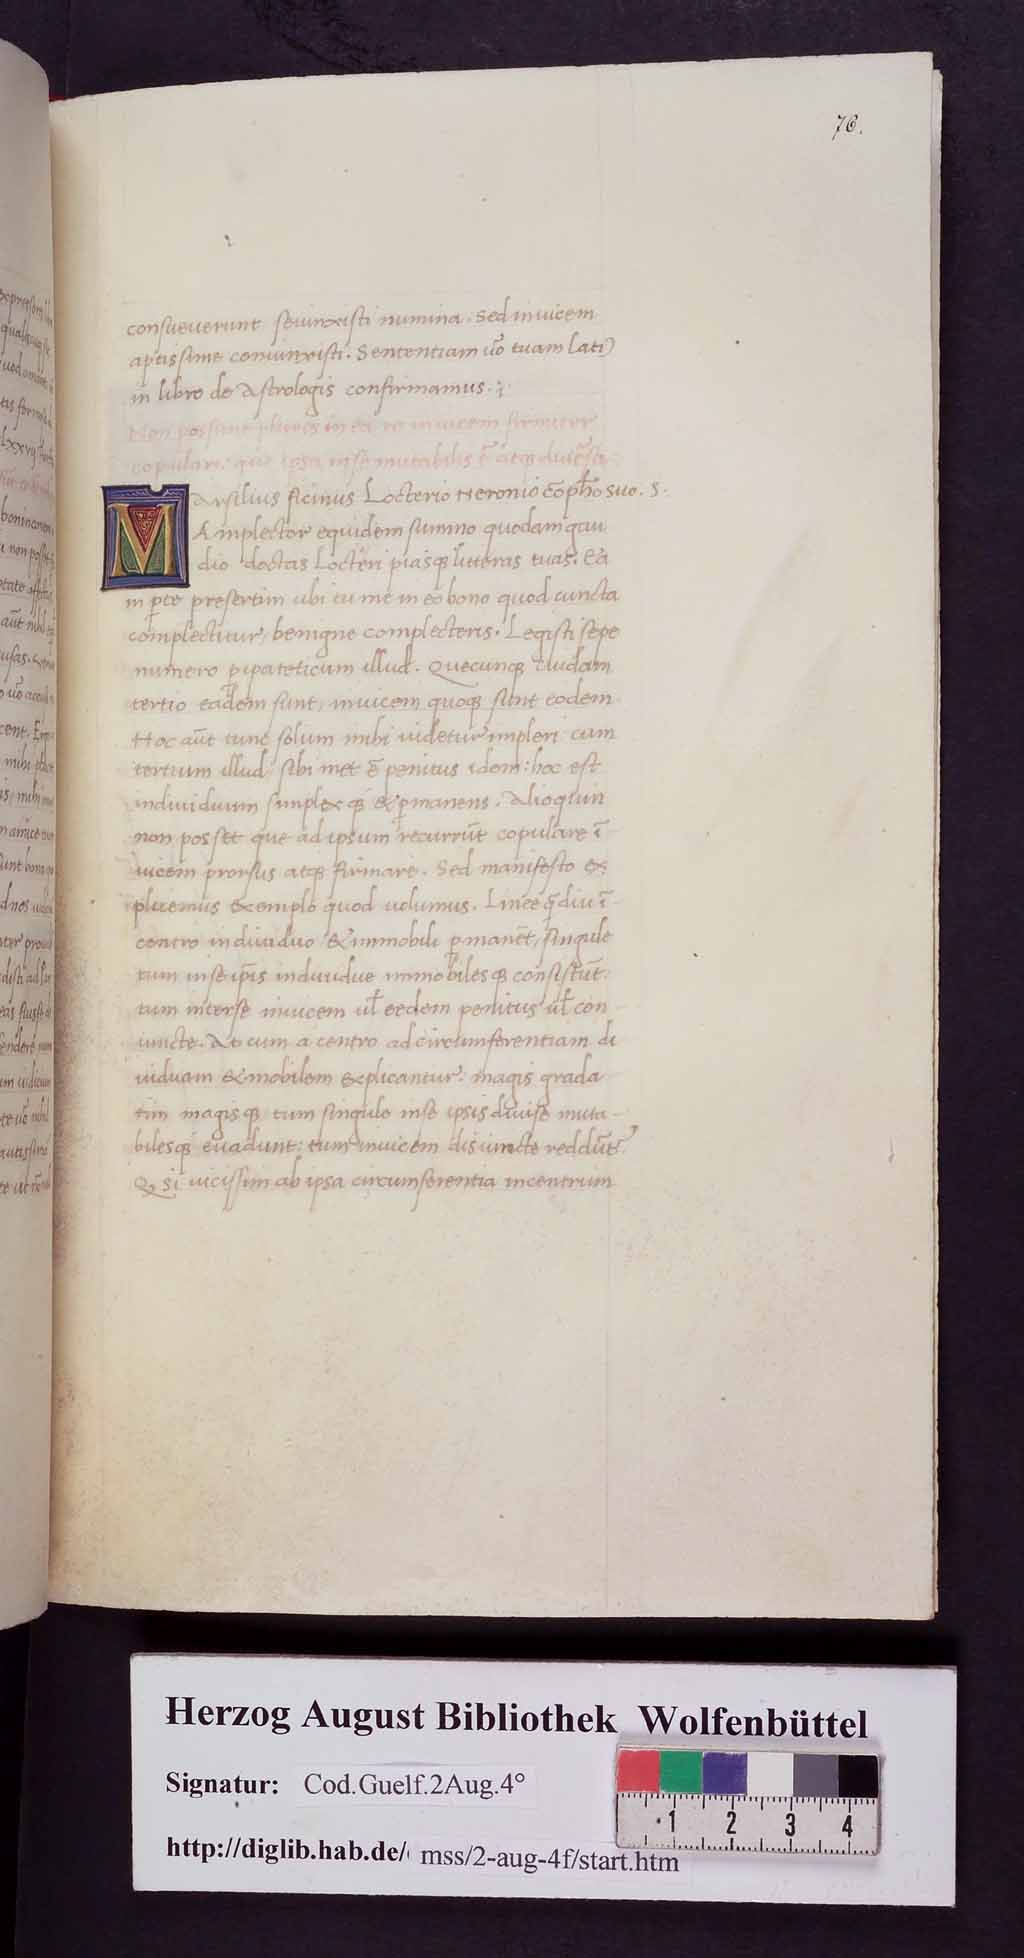 76.
consueverunt seiunxisti numina. Sed inuicem
aptissime coniunxisti. Sententiam uo᷃ tuam lati
in libro de Astrologis confirmamus.
Non possunt plures in ea re inuicem firmiter
copulari: que ipsa in se mutabilis e᷃ atq; diuersa
MArsilius ficinus Locterio Neronio co᷃ph᷃o suo. S.
Amplector equidem summo quodam gau
dio doctas Locteri piasq; litteras tuas. Ea
in pte presertim ubi tu me in eo bono quod cuncta
complectitur, benigne complecteris. Legisti sepe
numero pipateticum illud. Quecunq; cuidam
tertio eadem sunt, inuicem quoq; sunt eodem
Hoc aut᷃ tunc solum mihi uidetur impleri cum
tertium illud sibi met e᷃ penitus idem: hoc est
indiuiduum simplex q; & pmanens. Alioquin
non posset que ad ipsum recurru᷃t copulare i᷃
uicem prorsus atq; firmare. Sed manifesto ex
plicemus exemplo quod uolumus. Linee q᷃diu i᷃
centro indiuiduo & immobili pmane᷃t, singule
tum in se ip᷃is indiuidue immobilesq; consistu᷃t:
tum inter se inuicem ul᷃ eedem penitus ul᷃ con
iuncte. At cum a centro ad circumferentiam di
uiduam & mobilem explicantur: magis grada
tim magisq; tum singule in se ipsis diuise muta-
bilesq; euadunt: tum inuicem disiuncte reddu᷃t
Q si uicissim ab ipsa circumferentia in centrum
Herzog August Bibliothek Wolfenbüttel
Signatur: Cod.Guelf.2Aug.4°
http://diglib.hab.de/ mss/2-aug-4f/start.htm
1 2 3 4